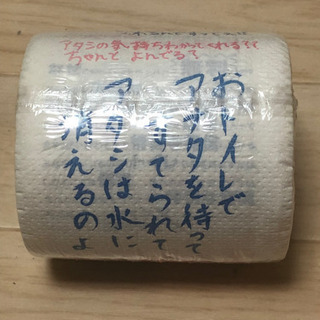 アタシの気持ちわかってくれる??
ちゃんと よんでる?
おトイレで
アナタを待って
すてられて
アタシは水に
消えるのよ